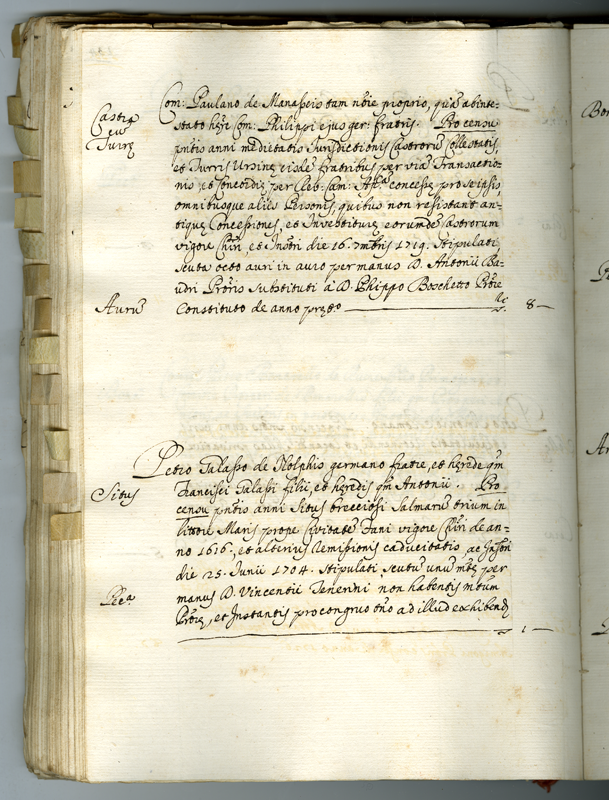 Com: Paulano de Manasseis tam nõie proprio, quã abinte-
Castrȝ
stato hẽȝ Com: Philippi ejus ger: fratris. Pro censu
eiu
pñtis anni medietatis Jurisdictionis Castrorũ Collestatis,
Turrȝ
et Turris Ursinȝ eisdẽ fratribus per viã Transactio-
nis, et Concordiȝ per Rev: Cam: Ap. concessȝ pro se ipsis,
omnibusque aliis Personis, quibus non resistant an-
tiquȝ Concessiones, et Investiturȝ eorumdẽ Castrorum
vigore Chiri, et Instri die 16. 7mbris 1719. Stipulati,
scuta octo auri in auro per manus D. Antonii Ba-
udri Prõris Substituti à D. Phippo Boschetto Prõre
Aurũ
Constituto de anno prȝd.o 8 —
Petro Talasso de Nolphis germano fratre, et herede qm̃
Francisci Talassi filii, et heredis qm̃ Antonii. Pro
Situs
censu pñtis anni Situs trecciosi Salmarũ trium in
littore Maris prope Civitatẽ Fani vigore Chiri de an-
no 1616., et alterius remissionis caducitatis, ac
die 25. Junii 1704. Stipulati, scutũ unũ mtȝ per
manus D. Vincentii Tenerini non habentis mtum
Prõrȝ, et Instantis pro congruo tño ad illud exhibend
1 —